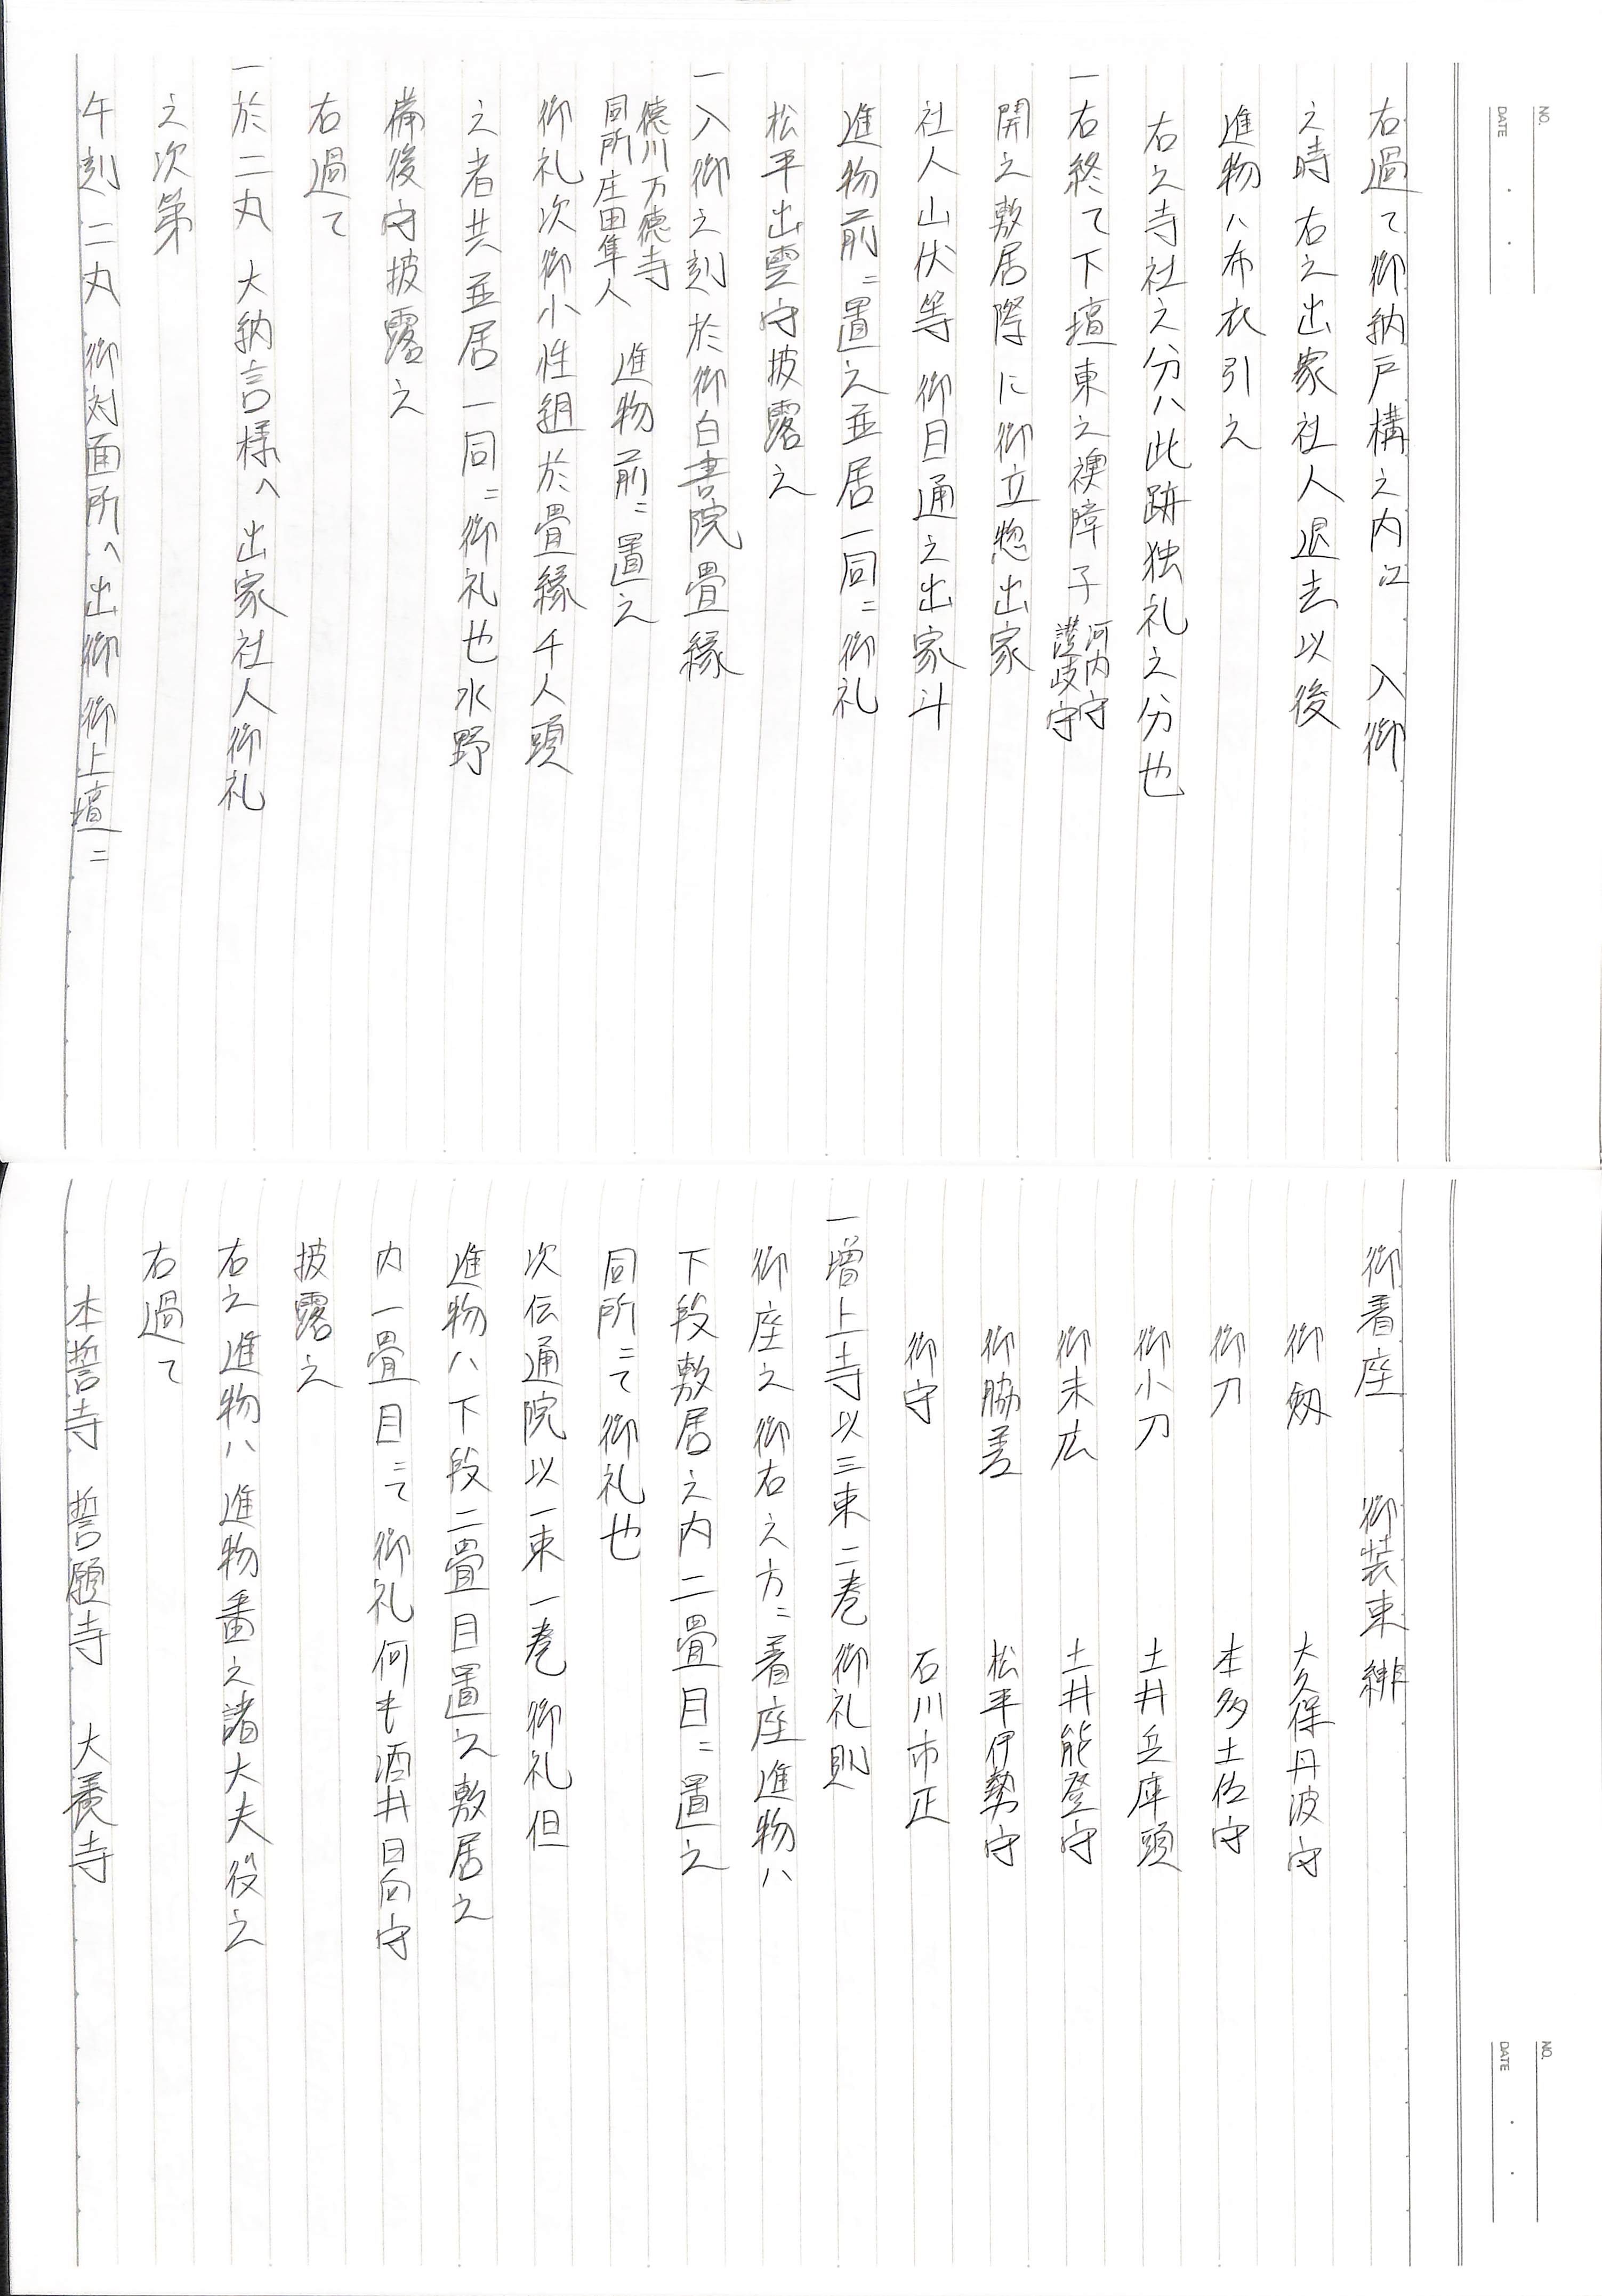 NO.
DATE
右過て御納戸構之内江　入御
之時右之出家社人退去以後
進物ハ布衣引之
右之寺社之分ハ此跡独礼之分也
一右終て下壇東之襖障子河内守
讃岐守
開之敷居際に御立惣出家
社人山伏等御目通之出家斗
進物前ニ置之並居一同ニ御礼
松平出雲守披露之
一入御之刻於御白書院畳縁
徳川万徳寺
同所庄田隼人　進物前ニ置之
御礼次御小性組於畳縁千人頭
之者共並居一同ニ御礼也水野
備後守披露之
右過て
一於二丸　大納言様へ出家社人御礼
之次第
午刻二丸御対面所へ出御御上壇ニ
NO.
DATE
御着座　御装束緋
御剱　大久保丹波守
御刀　本多土佐守
御小刀　土井兵庫頭
御末広　土井能登守
御脇差　松平伊勢守
御守　石川市正
一増上寺以三束二巻御礼則
御座之御右之方ニ着座進物ハ
下段敷居之内二畳目ニ置之
同所ニて御礼也
次伝通院以一束一巻御礼但
進物ハ下段二畳目置之敷居之
内一畳目ニて御礼何も酒井日向守
披露之
右之進物ハ進物番之諸大夫役之
右過て
本誓寺　誓願寺　大養寺